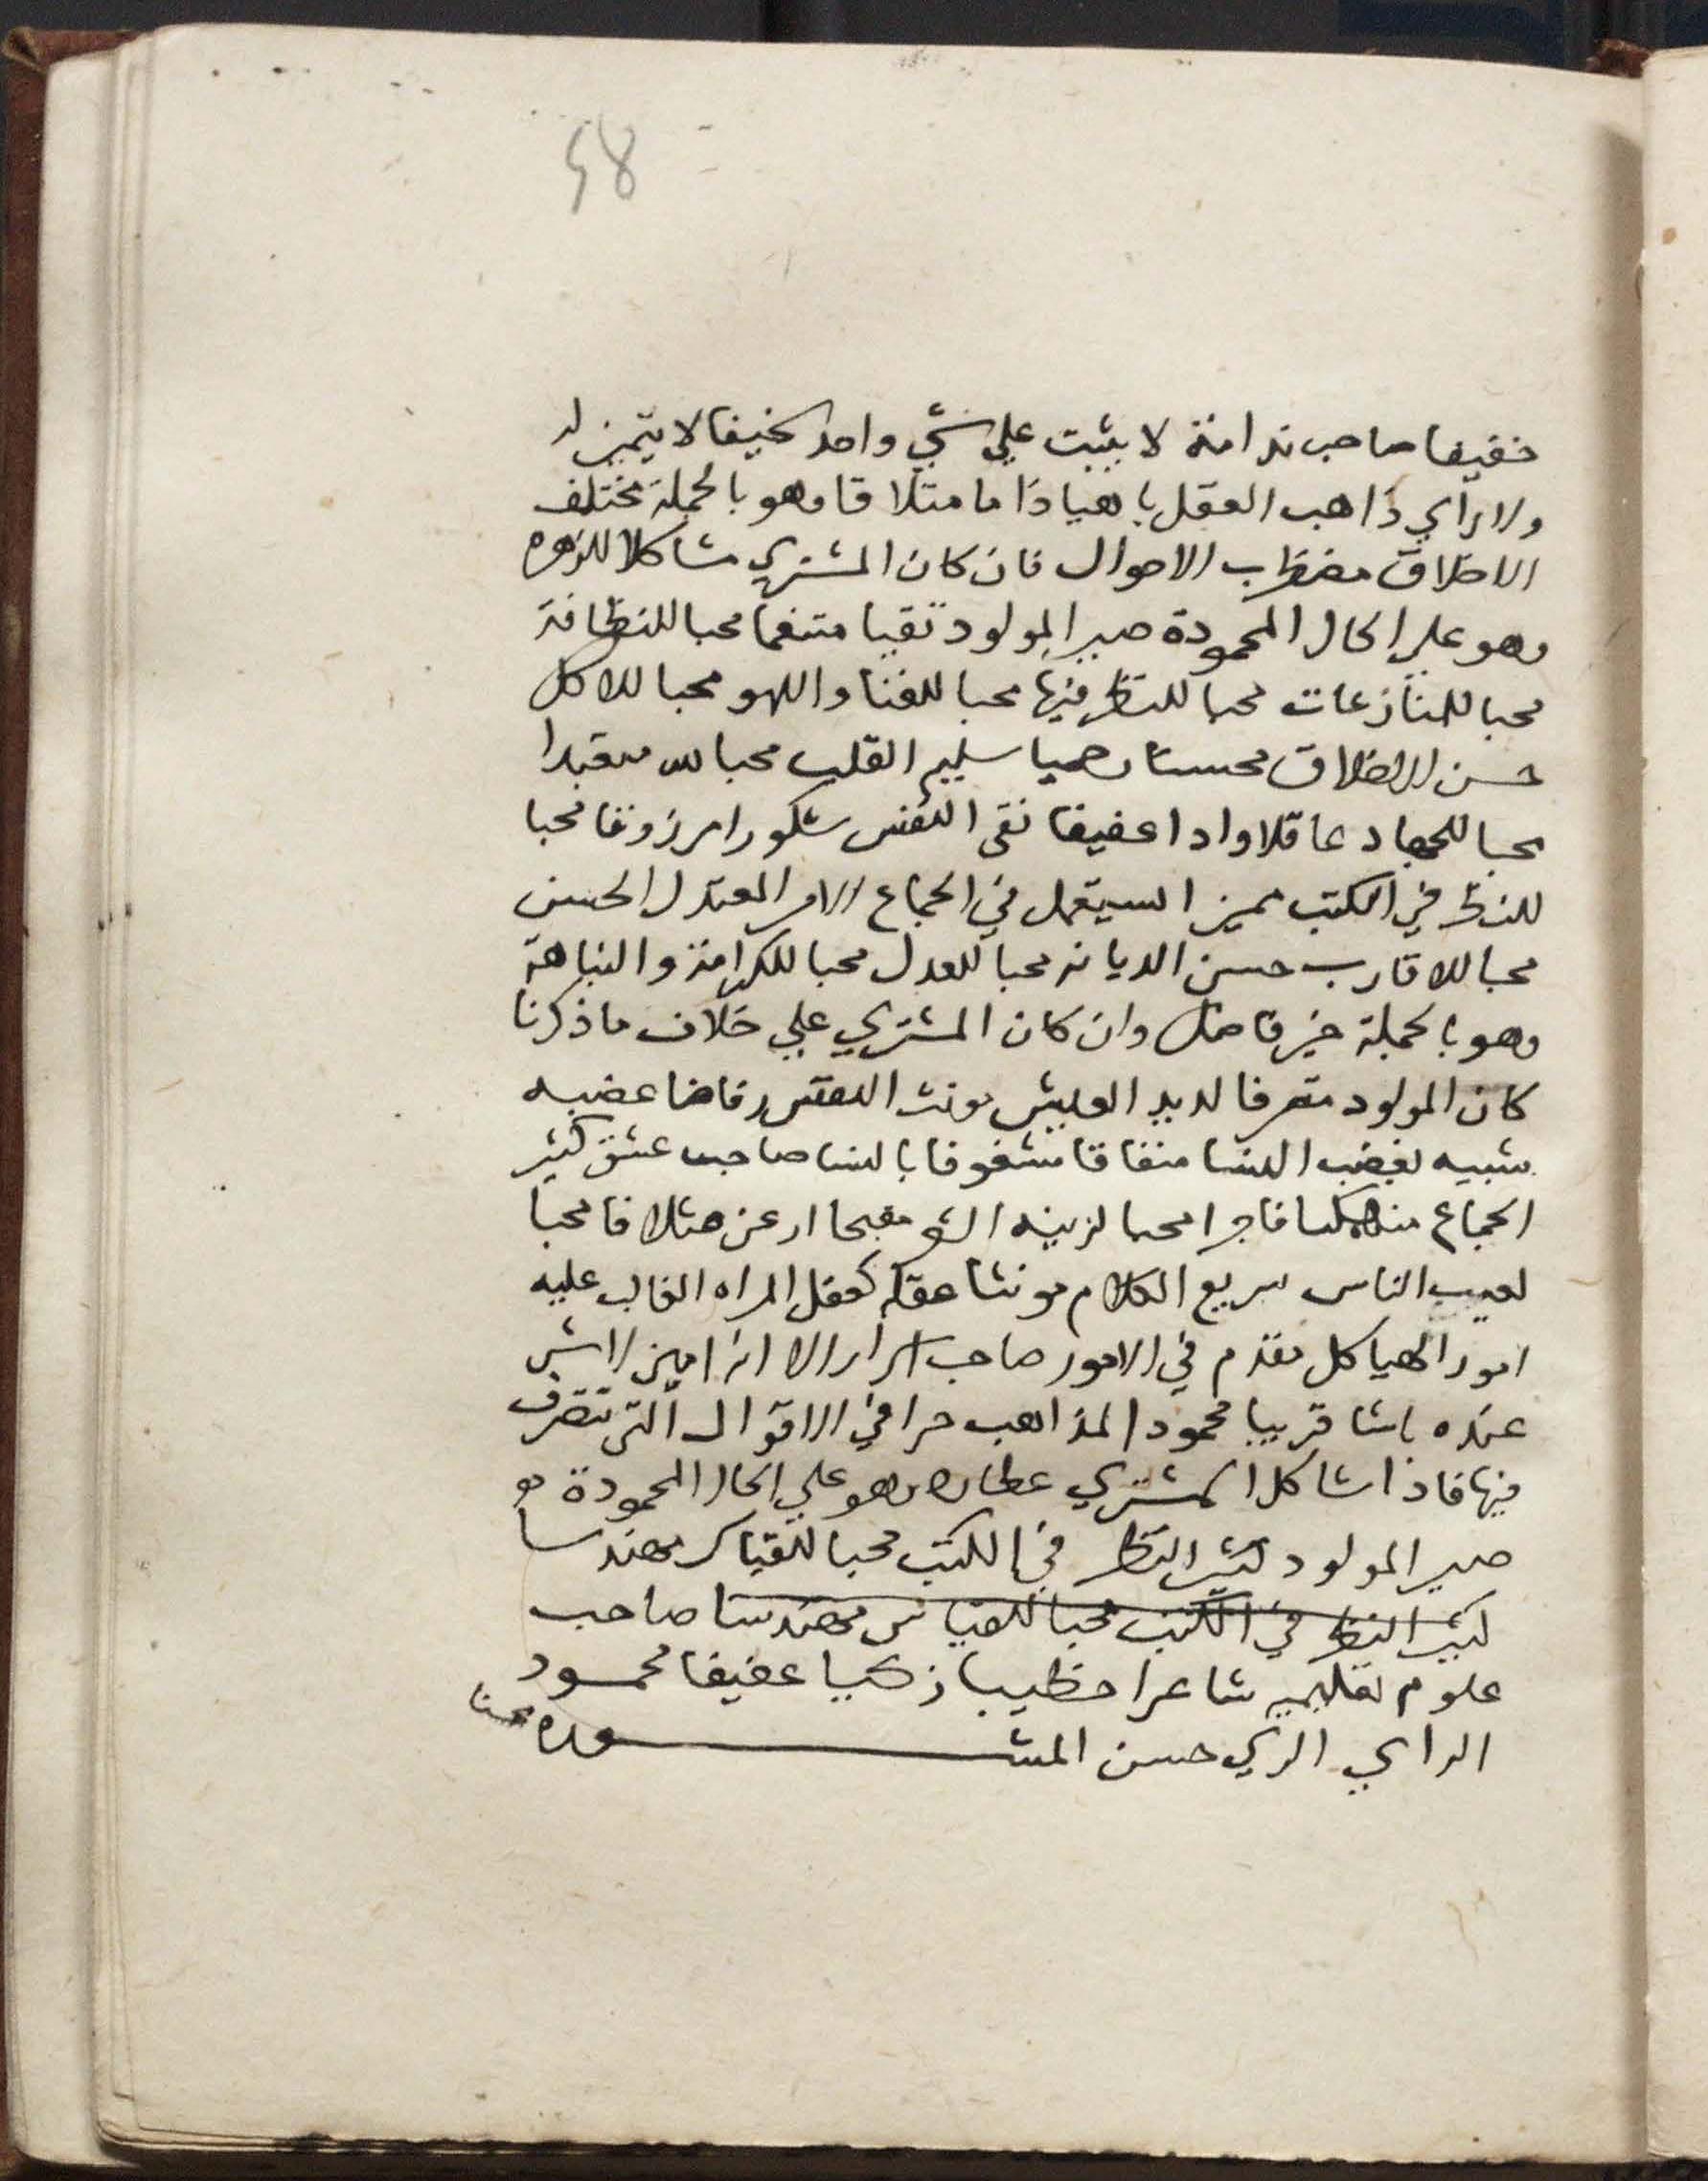 48
خفيفا صاحب ندامة لا يثبت علي شي واحد سخيفا لا يتميز له
ولا راي ذاهب العقل باهيا ذاما متلاقا وهو بالجملة مختلف
الاخلاق مضطرب الاحوال فان كان المشتري مشاكلا للزهره
وهو علي الحال المحمودة صير المولود نقيا متنعما محبا للنظافة
محبا للمنازعات محبا للنظر فيها محبا للغنا واللهو محبا للاكل
حسن الاخلاق محسنا رحيما سليم القلب محبا لله متعبدا
محبا للجهاد عاقلا وادا عفيفا نقي النفس شكورا مرزوقا محبا
للنظر في الكتب مميزا يستعمل في الجماع الامر المعتدل الحسن
محبا للاقارب حسن الديانه محبا للعدل محبا للكرامة والنباهة
وهو بالجملة خير فاضل وان كان المشتري علي خلاف ما ذكرنا
كان المولود مترفا لديد العيش مونث النفس رقاصا غضبه
شبيه بغضب النسا منفاقا مشغوفا بالنسا صاحب عشق كثير
الجماع منهمكا فاجرا محبا لزينه مقبحا ارعن متلافا محبا
لعيب الناس سريع الكلام مونثا عقله كعقل المراه الغالب عليه
امور الهياكل مقدم في الامور صاحب اسرار الا انه امين
عنده باشا قريبا محمود المذاهب حرا في الاقوال التي تتصرف
فيها فاذا شاكل المشتري عطارد وهو علي الحال المحمودة
صير المولود كثير النظر في الكتب محبا للقياس مهندسا
كثير النظر في الكتب محبا للقياس مهندسا صاحب
علوم تعليميه شاعرا خطيبا زكيا عفيفا محمود
الراي الزكي حسن المشوره محسنا